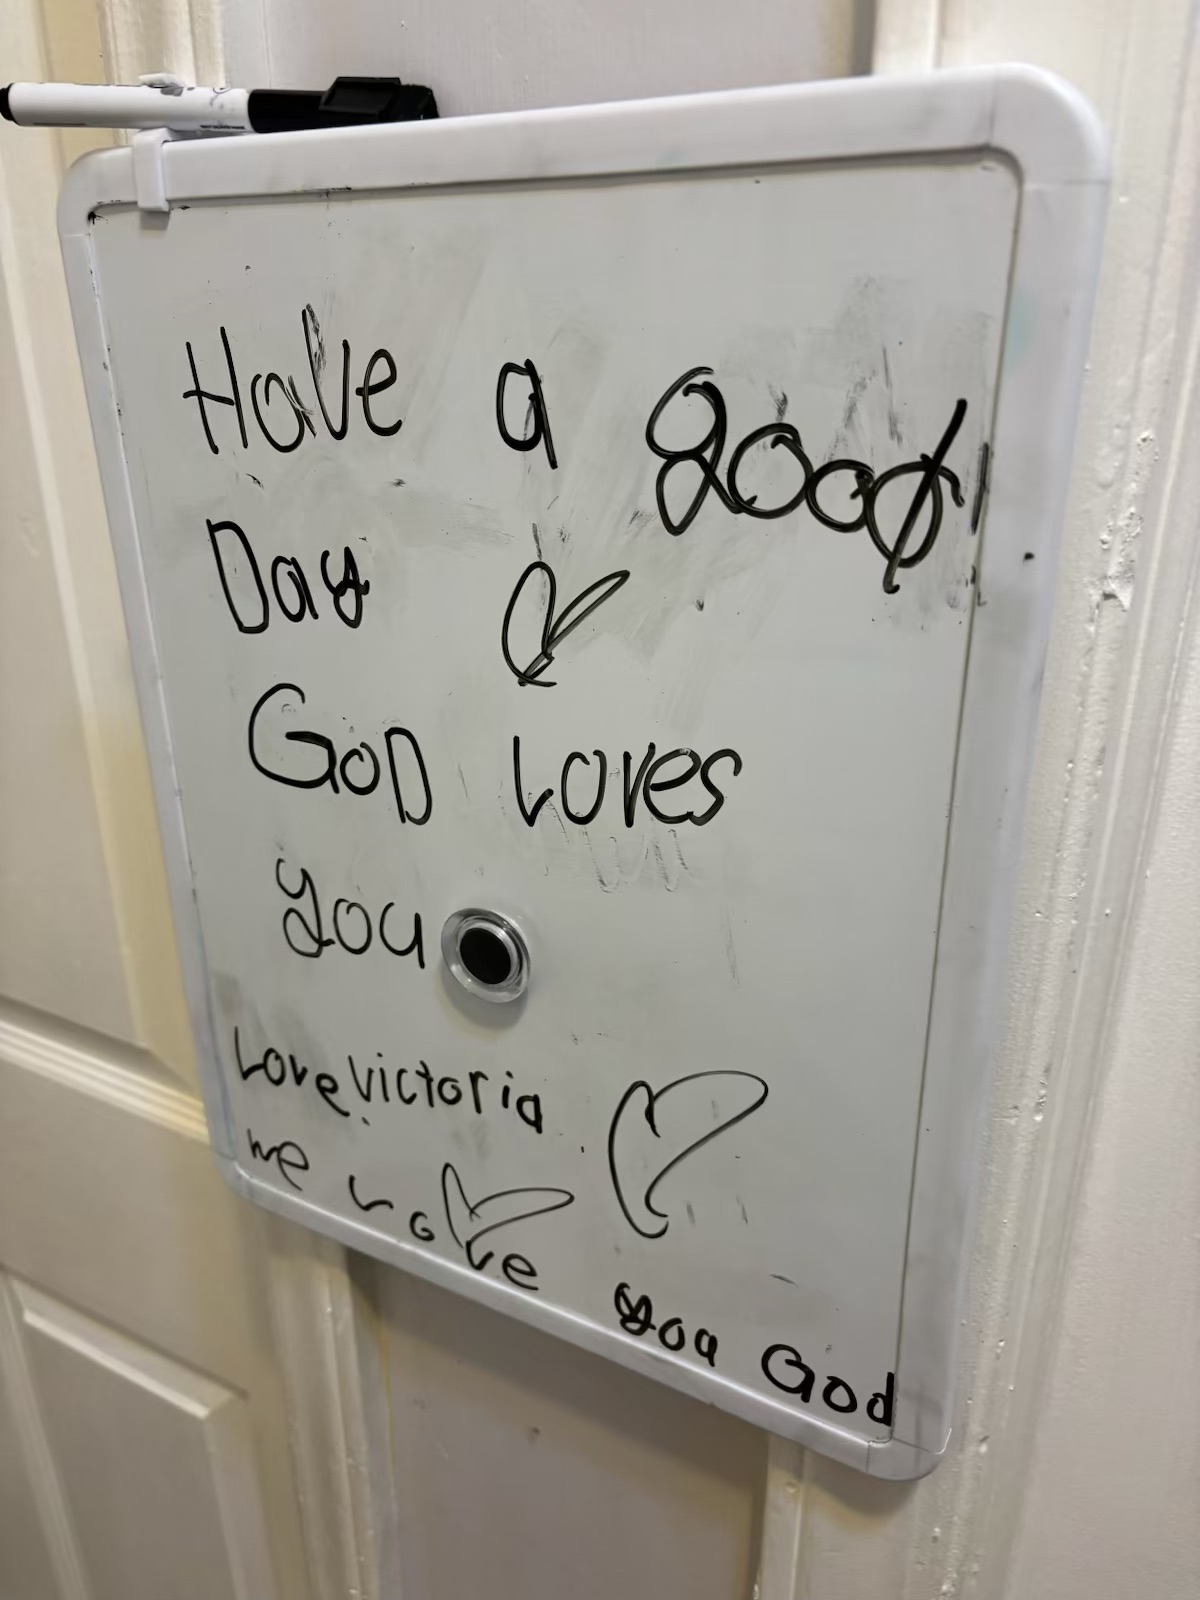 Have a good
Day
GoD Loves
you
Love Victoria
we Love you God